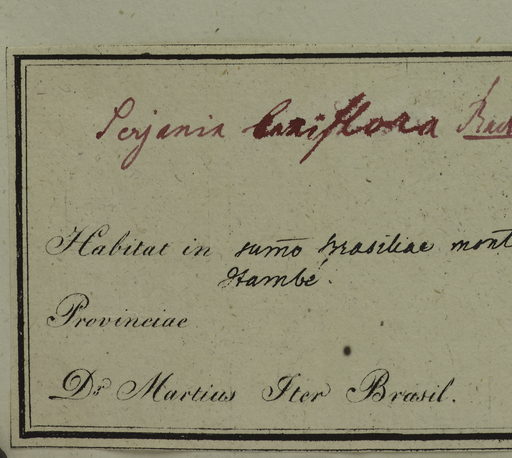 Serjania laxiflora Rad
Habitat in sum̄o Brasiliae mont
Itambé.
Provinciae
Dr. Martius Iter Brasil.